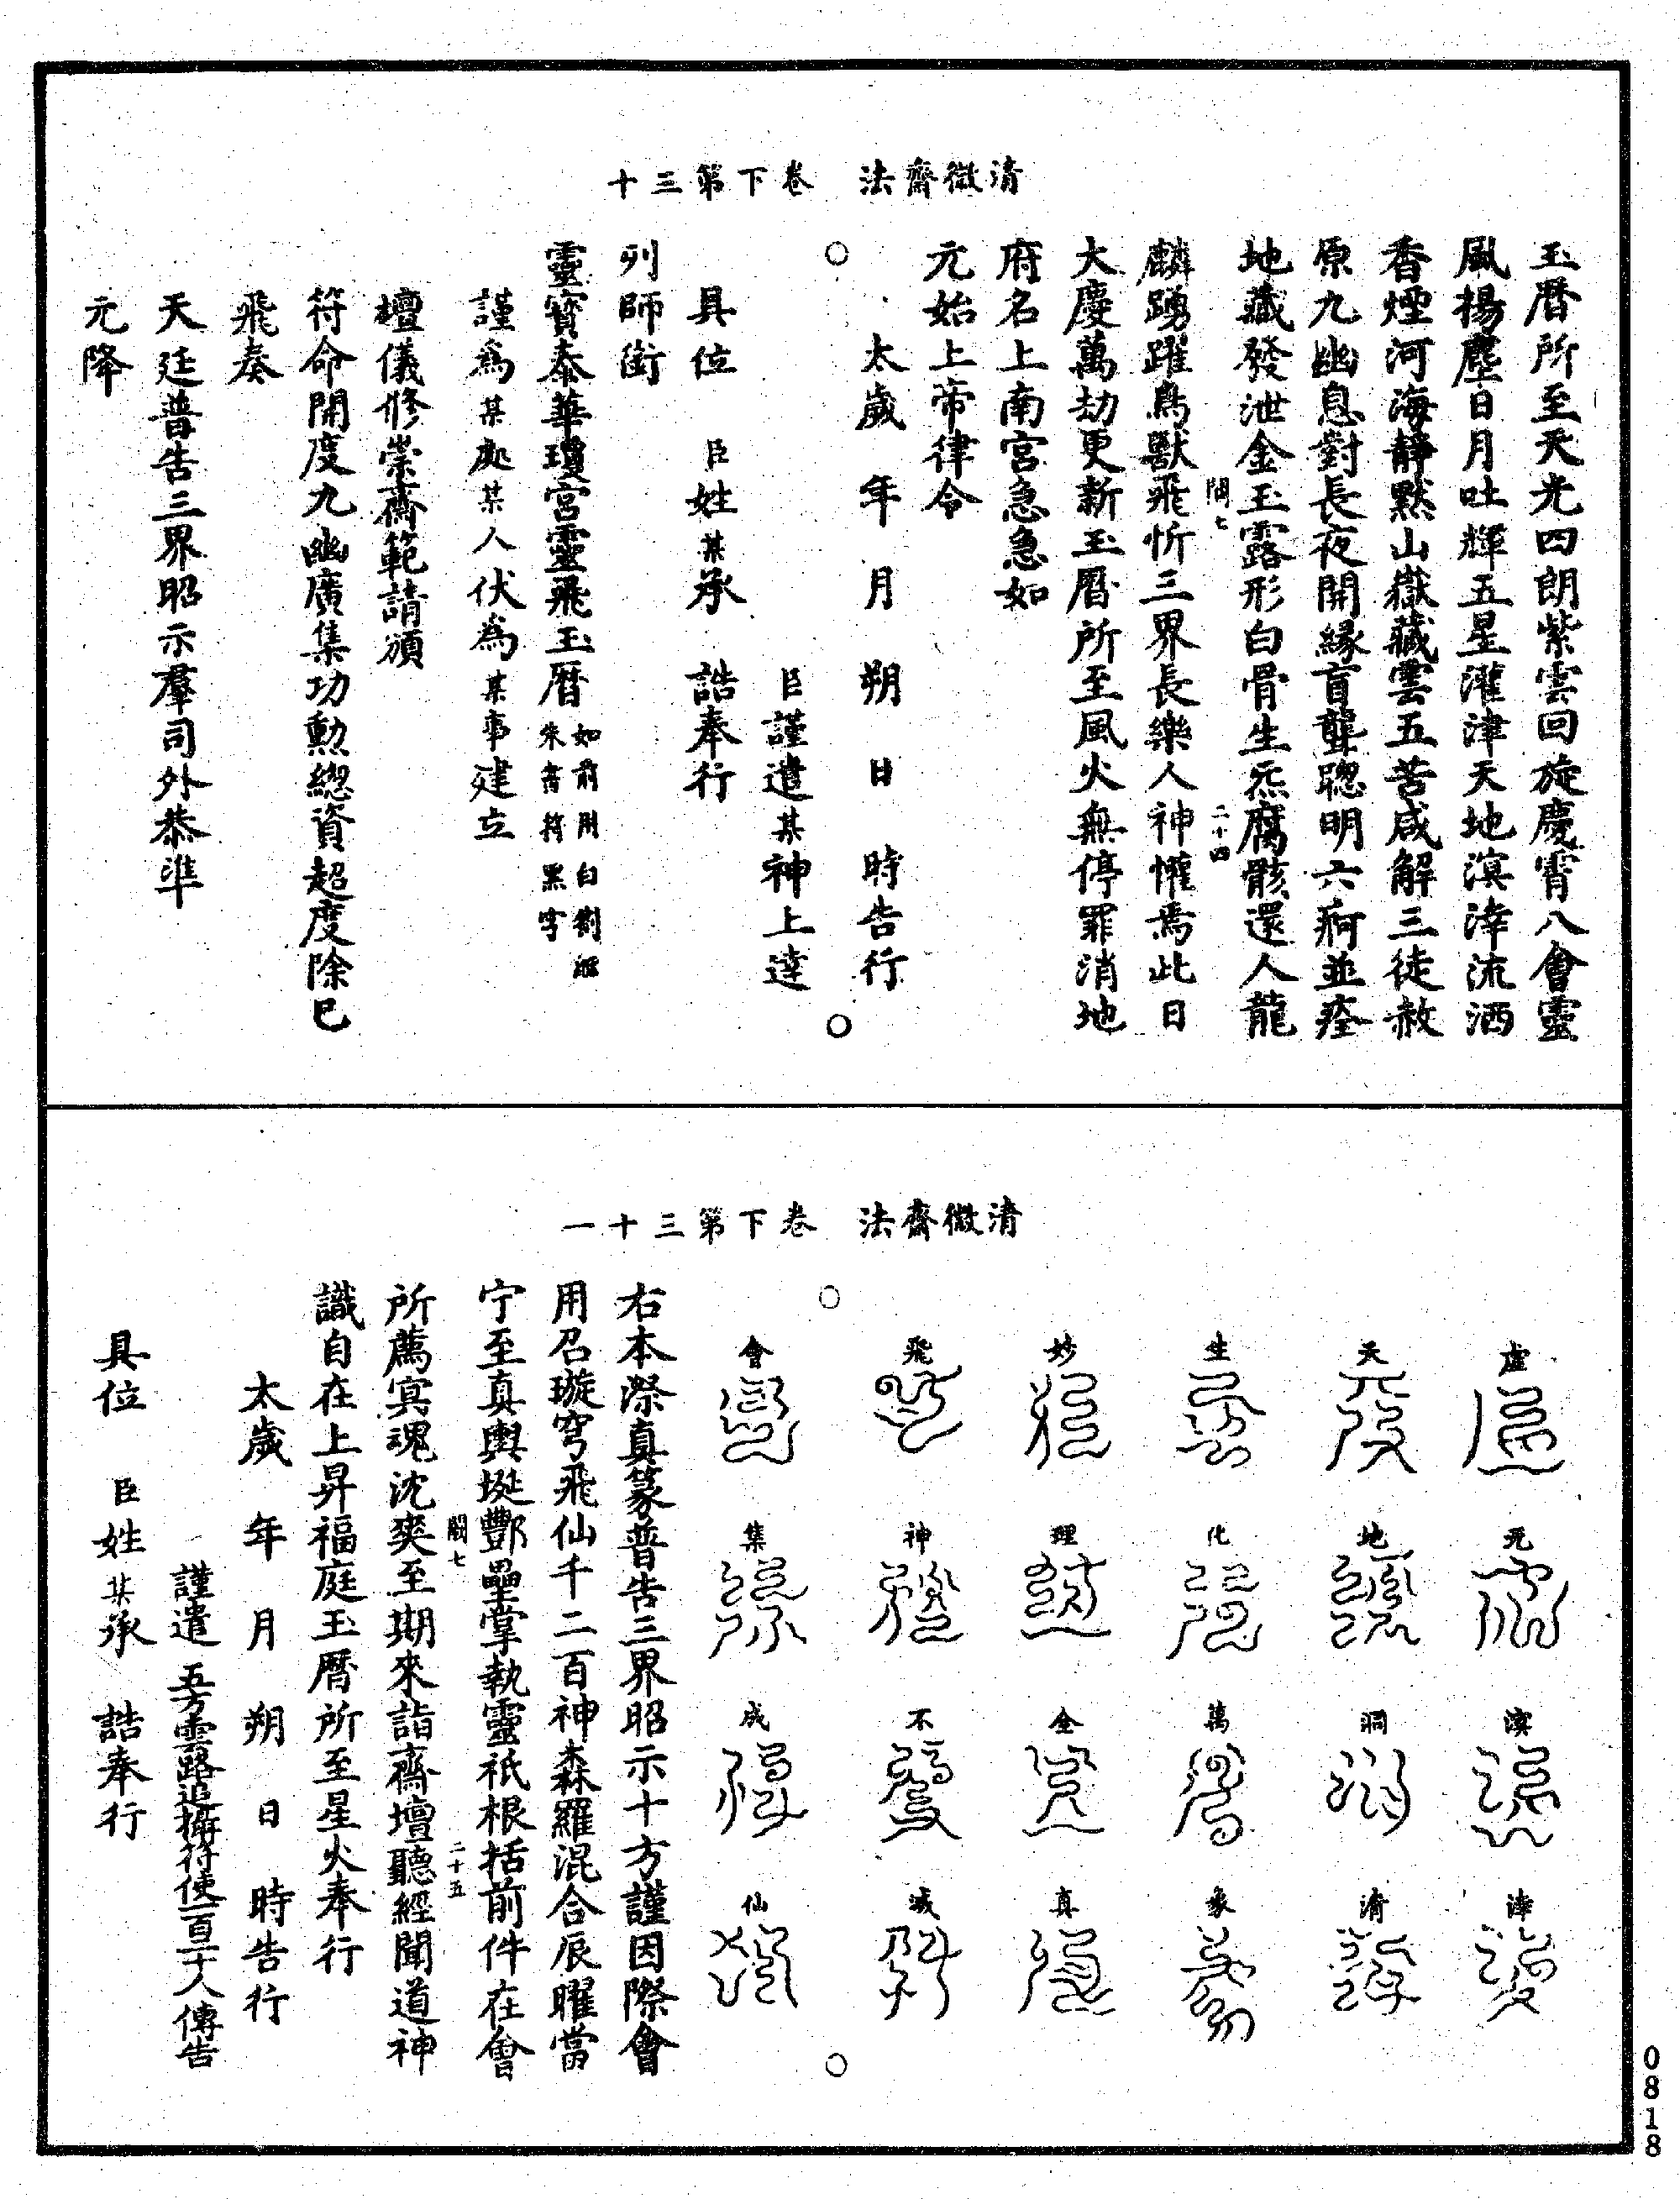 清微齋法　卷下第三十
玉曆所至天光四朗紫雲回旋慶霄八會靈
風揚塵日月吐輝五星灌津天地溟涬流洒
香煙河海靜默山嶽藏雲五苦咸解三徒赦
原九幽息對長夜開緣盲聾聦明六痾並痊
地藏發泄金玉露形白骨生炁腐骸還人龍
闕七　二十四
麟踴躍鳥獸飛忻三界長樂人神懽焉此日
大慶萬劫更新玉曆所至風火無停罪消地
府名上南宮急急如
元始上帝律令
太歲　年　月　朔　日　時告行
臣謹遣某神上達
具位　臣姓某承　誥奉行
列師銜
靈寶泰華瓊宮靈飛玉曆如前用白劄
朱書符黑字
謹爲某處某人伏爲某事建立
壇儀修崇齋範請頒
符命開度九幽廣集功勲緫資超度除已
飛奏
天廷普告三界昭示羣司外恭準
元降
清微齋法　卷下第三十一
虛　无　溟　涬
天　地　洞　清
生　化　萬　象
妙　理　全　真
飛　神　不　滅
會　集　成　仙
右本際真篆普告三界昭示十方謹因際會
用召璇穹飛仙千二百神森羅混合辰曜當
宁至真輿埏酆壘掌執靈祇根括前件在會
闕七　二十五
所薦㝠魂沈爽至期來詣齋壇聽經聞道神
識自在上昇福庭玉曆所至星火奉行
太歲　年　月　朔　日　時告行
謹遣　五方雲路追攝符使一百二十人傳告
具位　臣姓某承　誥奉行
0818